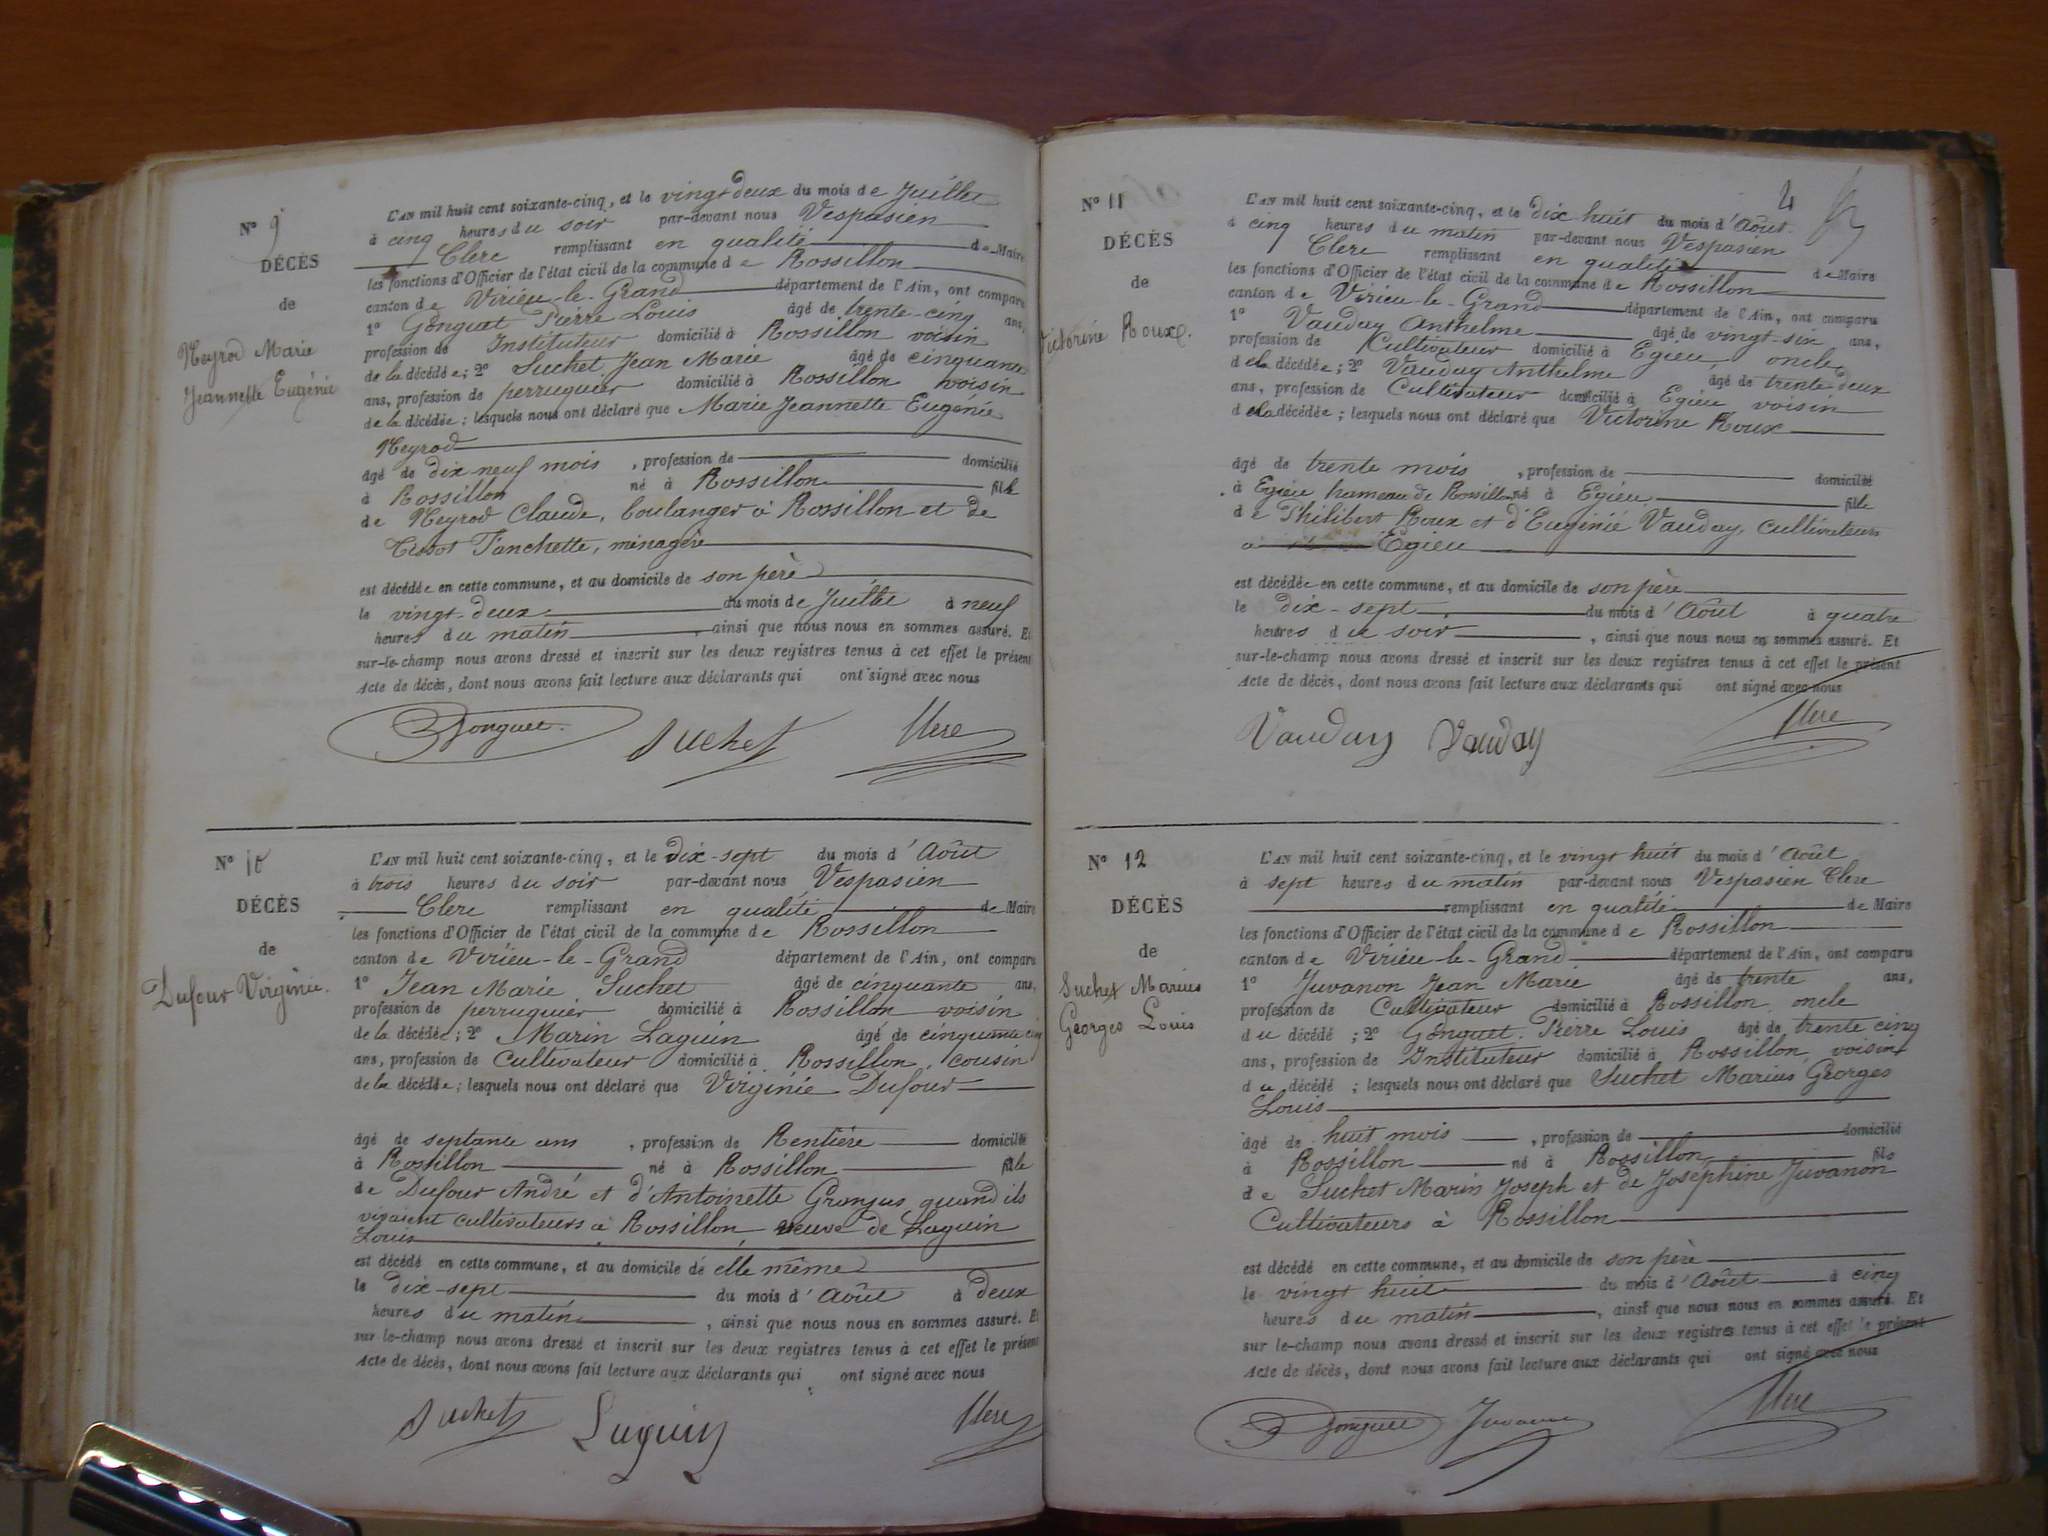 N° 9
DÉCÈS
de
Neyrod Marie
Jeannette Eugénie
L'AN mil huit cent soixante-cinq, et le vingt deux du mois de Juillet
à cinq heures du soir par-devant nous Vespasien
Clerc remplissant en qualité de Maire
les fonctions d'Officier de l'état civil de la commune de Rossillon
canton de Virieu-le-Grand département de l'Ain, ont comparu
1° Gonguet Pierre Louis âgé de trente-cinq ans,
profession de Instituteur domicilié à Rossillon voisin
de la décédée; 2° Suchet Jean Marie âgé de cinquante
ans, profession de perruquier domicilié à Rossillon voisin
de la décédée; lesquels nous ont déclaré que Marie Jeannette Eugénie
Neyrod
âgé de dix neuf mois, profession de domicilié
à Rossillon né à Rossillon fille
de Neyrod Claude, boulanger à Rossillon et de
Tissot Fanchette, ménagère
est décédée en cette commune, et au domicile de son père
le vingt-deux du mois de Juillet à neuf
heures du matin, ainsi que nous nous en sommes assuré. Et
sur-le-champ nous avons dressé et inscrit sur les deux registres tenus à cet effet le présent
Acte de décès, dont nous avons fait lecture aux déclarants qui ont signé avec nous
Gonguet Suchet Clerc
N° 10
DÉCÈS
de
Dufour Virginie.
L'AN mil huit cent soixante-cinq, et le dix-sept du mois d'Août
à trois heures du soir par-devant nous Vespasien
Clerc remplissant en qualité de Maire
les fonctions d'Officier de l'état civil de la commune de Rossillon
canton de Virieu-le-Grand département de l'Ain, ont comparu
1° Jean Marie Suchet âgé de cinquante ans,
profession de perruquier domicilié à Rossillon voisin
de la décédée; 2° Marin Laguin âgé de cinquante cinq
ans, profession de Cultivateur domicilié à Rossillon, cousin
de la décédée; lesquels nous ont déclaré que Virginie Dufour
âgé de septante ans, profession de Rentière domicilié
à Rossillon né à Rossillon fille
de Dufour André et d'Antoinette quand ils
vivaient cultivateurs à Rossillon, veuve de Laguin
Louis
est décédé en cette commune, et au domicile de elle même
le dix-sept du mois d'Août à deux
heures du matin, ainsi que nous nous en sommes assuré. Et
sur-le-champ nous avons dressé et inscrit sur les deux registres tenus à cet effet le présent
Acte de décès, dont nous avons fait lecture aux déclarants qui ont signé avec nous
Suchet Laguin Clerc
4
N° 11
DÉCÈS
de
Victorine Roux.
L'AN mil huit cent soixante-cinq, et le dix huit du mois d'Août
à cinq heures du matin par-devant nous Vespasien
Clerc remplissant en qualité de Maire
les fonctions d'Officier de l'état civil de la commune de Rossillon
canton de Virieu-le-Grand département de l'Ain, ont comparu
1° Vauday Anthelme âgé de vingt-six ans,
profession de Cultivateur domicilié à Egieu, oncle
de la décédée; 2° Vauday Anthelme âgé de trente deux
ans, profession de Cultivateur domicilié à Egieu voisin
de la décédée; lesquels nous ont déclaré que Victorine Roux
âgé de trente mois, profession de domicilié
à Egieu hameau de Rossillon né à Egieu fille
de Philibert Roux et d'Eugénie Vauday, Cultivateurs
à Egieu
est décédée en cette commune, et au domicile de son père
le dix-sept du mois d'Août à quatre
heures du soir, ainsi que nous nous en sommes assuré. Et
sur-le-champ nous avons dressé et inscrit sur les deux registres tenus à cet effet le présent
Acte de décès, dont nous avons fait lecture aux déclarants qui ont signé avec nous
Vauday Vauday Clerc
N° 12
DÉCÈS
de
Suchet Marius
Georges Louis
L'AN mil huit cent soixante-cinq, et le vingt huit du mois d'Août
à sept heures du matin par-devant nous Vespasien Clerc
remplissant en qualité de Maire
les fonctions d'Officier de l'état civil de la commune de Rossillon
canton de Virieu-le-Grand département de l'Ain, ont comparu
1° Juvanon Jean Marie âgé de trente ans,
profession de Cultivateur domicilié à Rossillon, oncle
du décédé; 2° Gonguet Pierre Louis âgé de trente cinq
ans, profession de Instituteur domicilié à Rossillon, voisin
du décédé; lesquels nous ont déclaré que Suchet Marius Georges
Louis
âgé de huit mois, profession de domicilié
à Rossillon né à Rossillon fils
de Suchet Marin Joseph et de Joséphine Juvanon
Cultivateurs à Rossillon
est décédé en cette commune, et au domicile de son père
le vingt huit du mois d'Août à cinq
heures du matin, ainsi que nous nous en sommes assuré. Et
sur le-champ nous avons dressé et inscrit sur les deux registres tenus à cet effet le présent
Acte de décès, dont nous avons fait lecture aux déclarants qui ont signé avec nous
Gonguet Juvanon Clerc